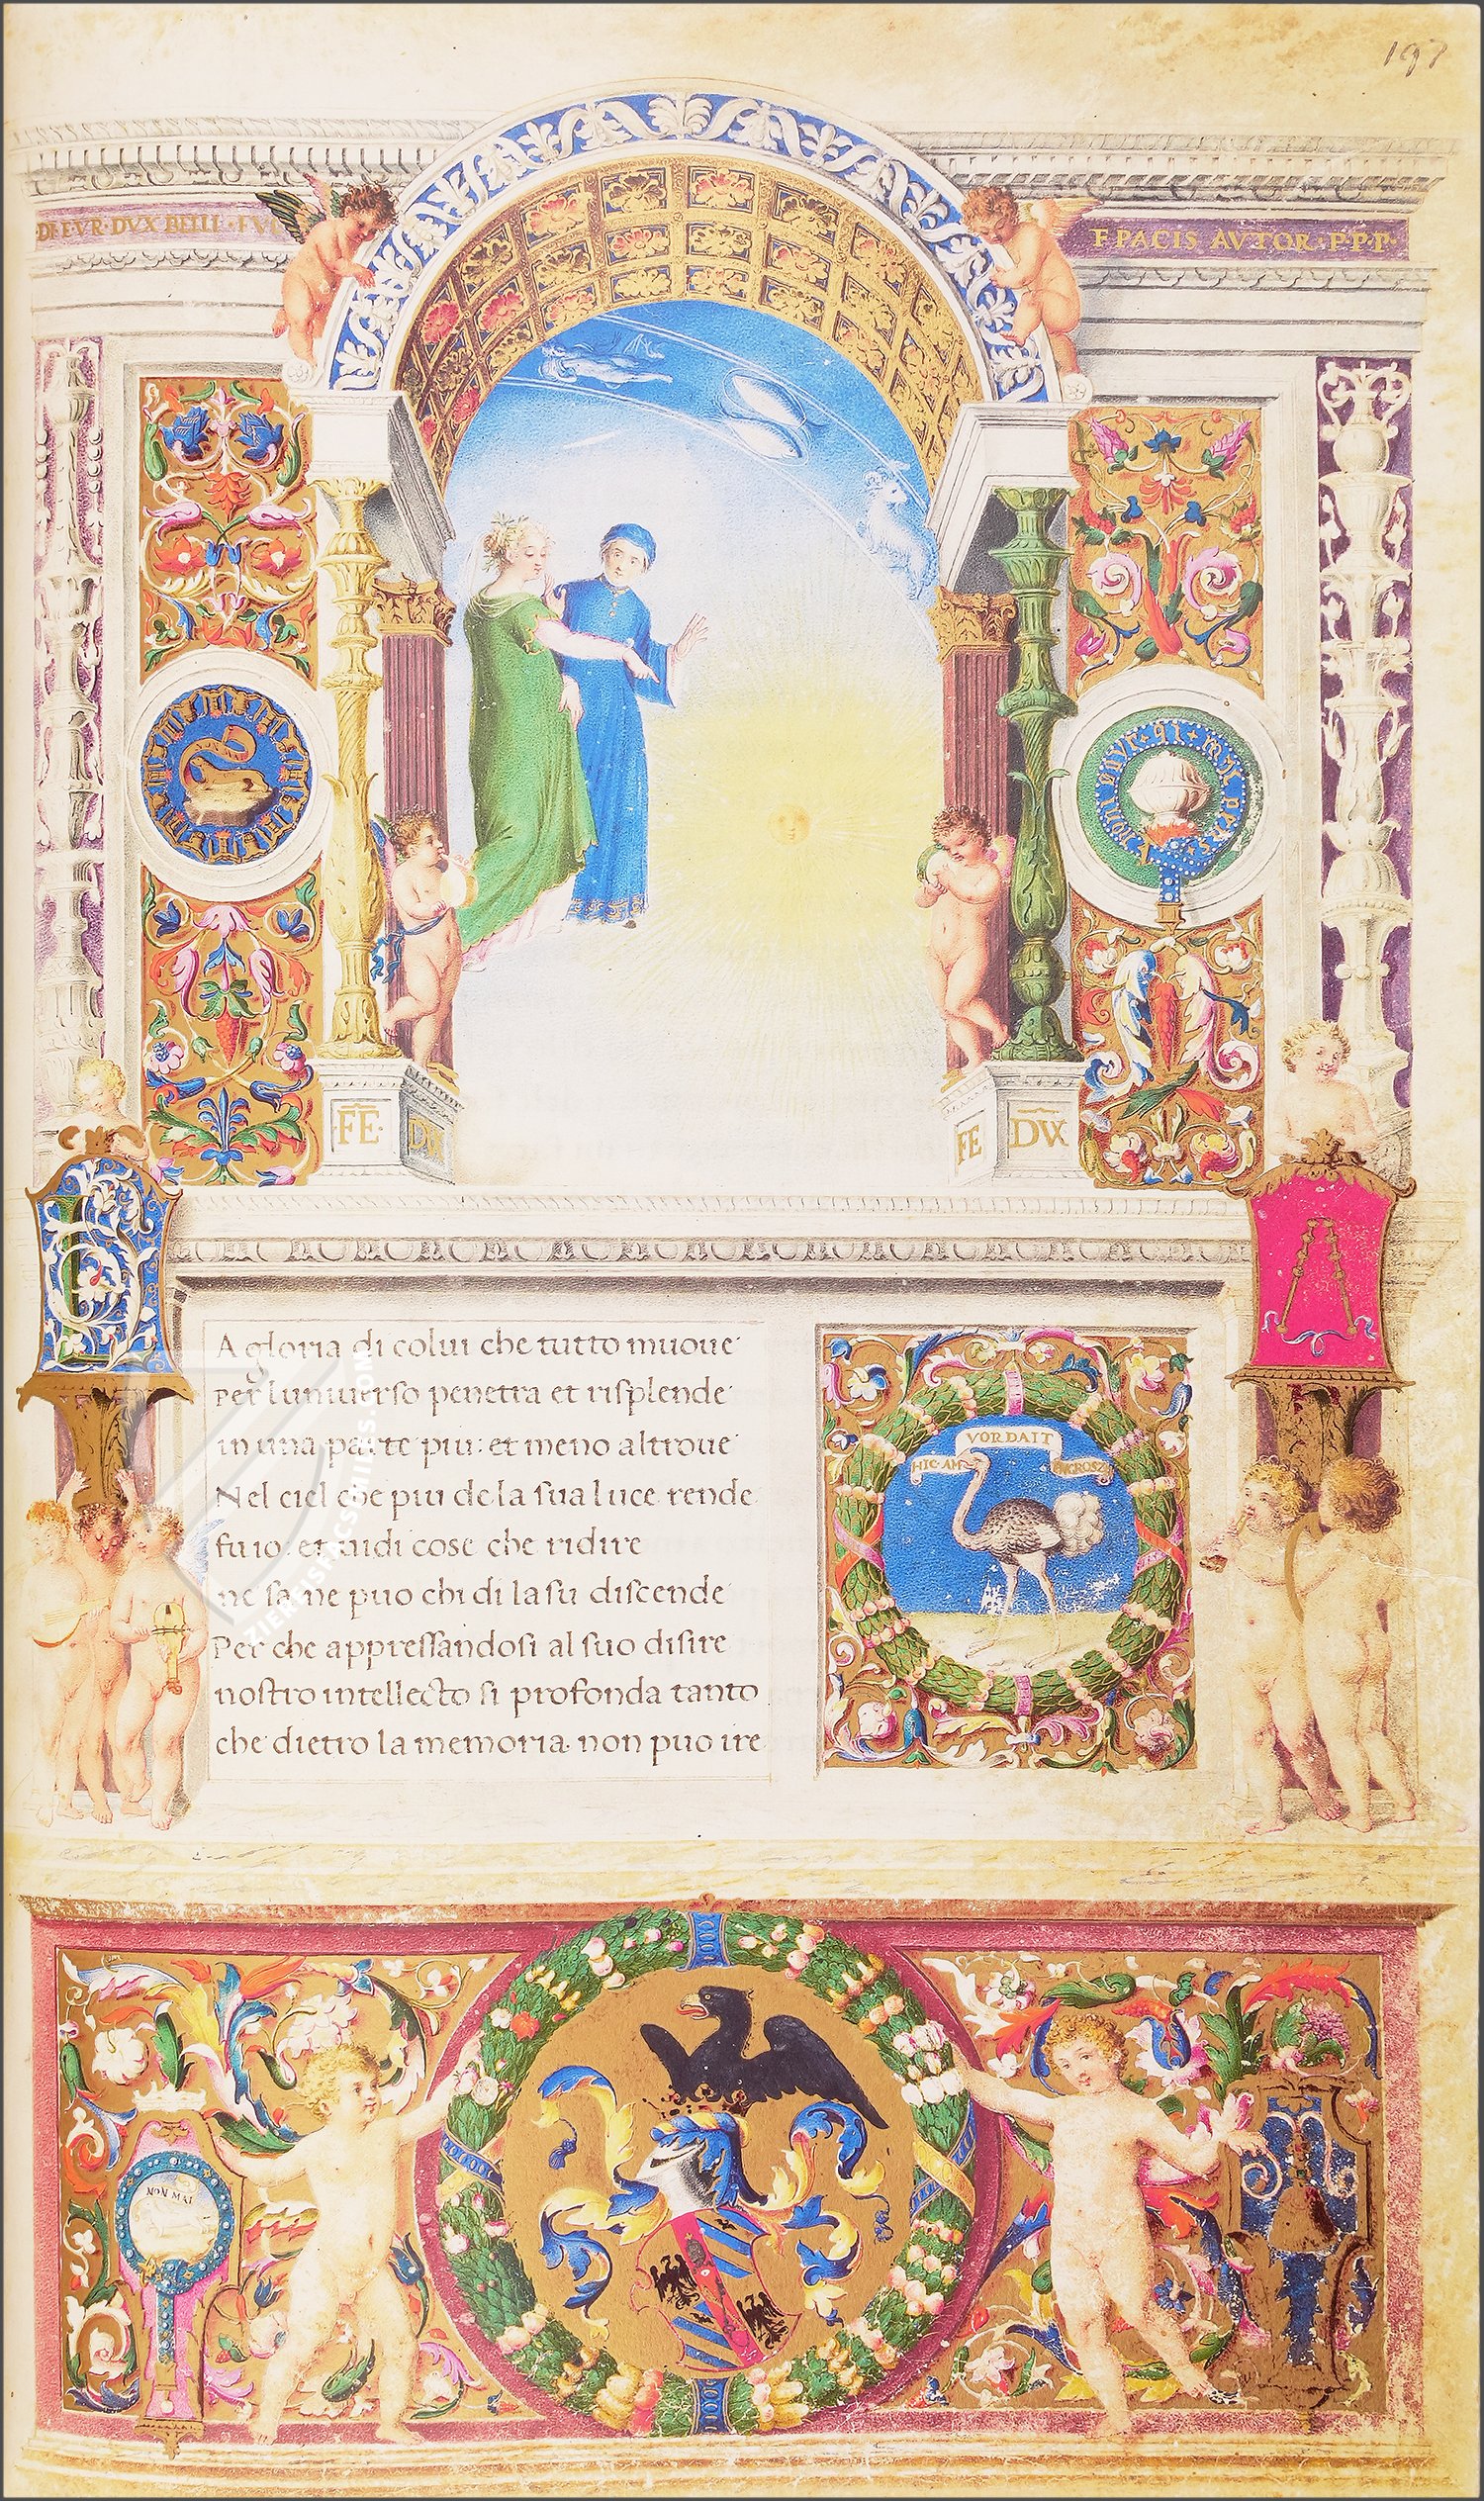 197
DVX BELLI
F PACIS AVTOR P.P.P.
FE DVX
FE DVX
A gloria di colui che tutto muoue
Per luniuerso penetra et risplende
in una parte piu: et meno altroue
Nel ciel che piu de la sua luce rende
fu io. et uidi cose che ridire
ne sa ne puo chi di la su discende
Per che appressandosi al suo disire
nostro intellecto si profonda tanto
che dietro la memoria non puo ire
VORDAIT
HIC AM
NON MAI
ZIEREIS FACSIMILES.COM